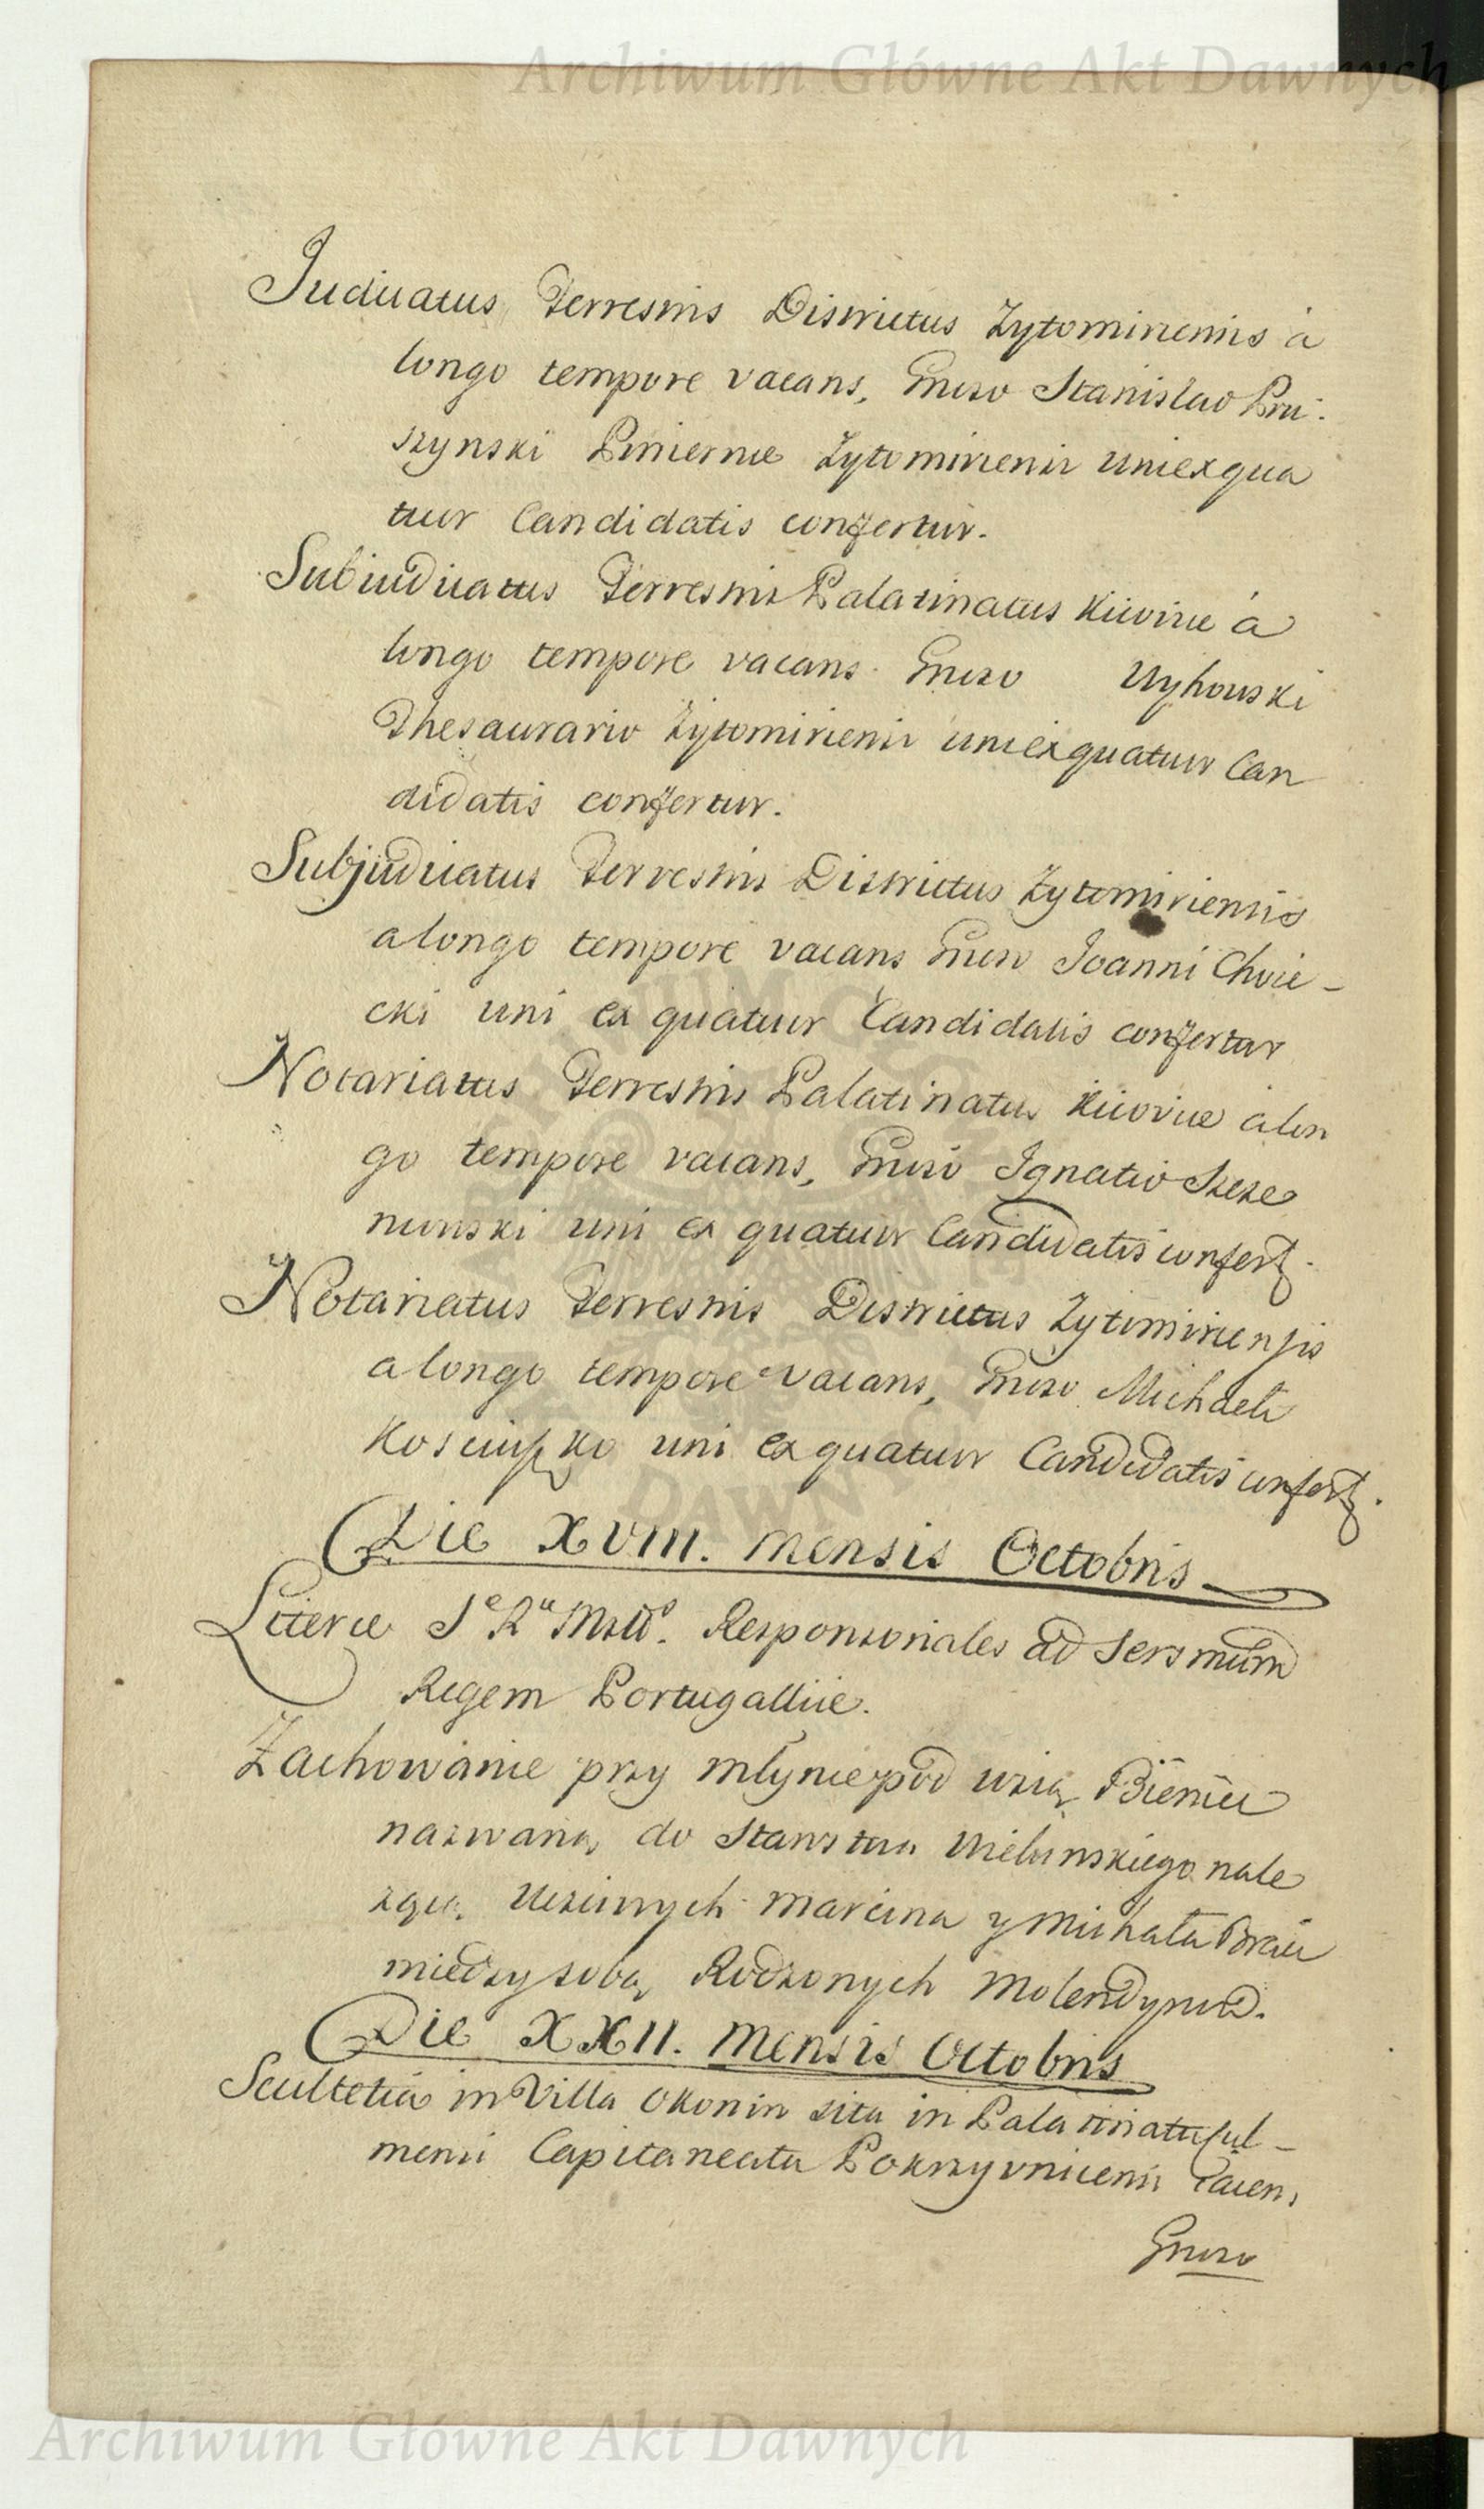 Archiwum Główne Akt Dawnych
Judicatus Terrestris Districtus Zytomiriensis à
longo tempore vacans, Gnroso Stanislao Pru-
szynski Pincernae Zytomiriensi uni ex qua
tuor Candidatis confertur.
Subiudicatus Terrestris Palatinatus Kiioviae à
longo tempore vacans. Gnroso Wyhowski
Thesaurario Zytomiriensi uni ex quatuor Can
didatis confertur.
Subjudicatus Terrestris Districtus Zytomiriensis
a longo tempore vacans Gnroso Joanni Choie-
cki uni ex quatuor Candidatis confertur
Notariatus Terrestris Palatinatus Kiioviae à lon
go tempore vacans, Gnroso Ignatio
uni ex quatuor Candidatis confert.
Notariatus Terrestris Districtus Zytomiriensis
a longo tempore vacans, Gnroso Michaeli
Kosciuszko uni ex quatuor Candidatis confert.
Die XVIII. Mensis Octobris
Literae Sae Rae Mttis. Responsoriales ad Sersmum
Regem Portugalliae.
Zachowanie przy młynie pod wsią Bieniec
nazwaną, do Starostwa Wielunskiego nale
żącą, Uczciwych Marcina y Michała Braci
między sobą Rodzonych
Die XXII. Mensis Octobris
Scultetia in Villa Okonin sita in Palatinatu Cul-
mensi Capitaneatu Pokrzywnicensi
Gnroso
Archiwum Główne Akt Dawnych